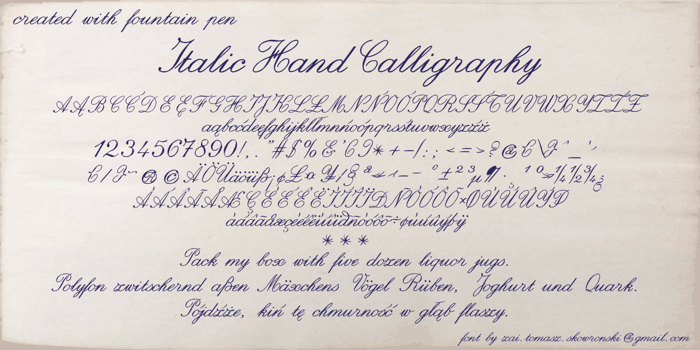 created with fountain pen
Italic Hand Calligraphy
AĄBCĆDEĘFGHIJKLŁMNŃOÓPQRSŚTUVWXYZŹŻ
aąbcćdeęfghijklłmnńoópqrsśtuvwxyzźż
1234567890!,."#$%&'()*+-/:;<=>?@[\]^_`
ÀÁÂÃÄÅÆÇÈÉÊËÌÍÎÏÐÑÒÓÔÕÖ×ØÙÚÛÜÝÞ
àáâãäåæçèéêëìíîïðñòóôõö÷øùúûüýþÿ
***
Pack my box with five dozen liquor jugs.
Polyfon zwitschernd aßen Mäxchens Vögel Rüben, Joghurt und Quark.
Pójdźże, kiń tę chmurność w głąb flaszy.
font by zai.tomasz.skowronski@gmail.com